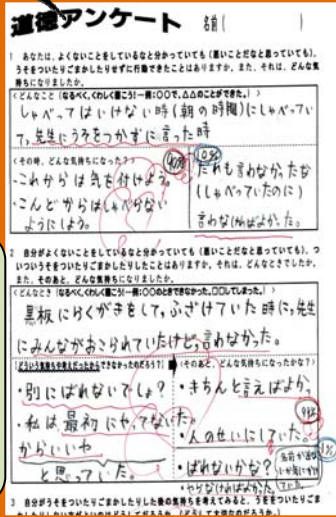 道徳アンケート 名前(　　　)
1 あなたは、よくないことをしているなと分かっていても(悪いことだなと思っていても)、
うそをついたりごまかしたりせずに行動できたことはありますか。また、それは、どんな気
持ちになりましたか。
<どんなこと(なるべく、くわしく書こう!一例:〇〇で、△△のことができた。)>
しゃべってはいけない時(朝の時間)にしゃべってい
て、先生にうそをつかずに言った時
<その時、どんな気持ちになった?>
90%
・これからは気を付けよう。
・こんどからはしゃべらない
ようにしよう。
10%
だれも言わなかったな
(しゃべっていたのに)
言わなければよかった。
2 自分がよくないことをしているなと分かっていても(悪いことだなと思っていても)、つ
いついうそをついたりごまかしたりしたことはありますか。それは、どんなときでしたか。
また、そのあと、どんな気持ちになりましたか。
<どんなとき(なるべく、くわしく書こう!一例:〇〇のときできなかった。〇〇してしまった。)>
黒板にらくがきをして、ふざけていた時に、先生
にみんながおこられていたけど、言わなかった。
<どういう気持ちや考えだったからできなかったのだろう?>
・別にばれないでしょ?
・私は最初にやってないた。
からいいや
と思っていた。
<そのあと、どんな気持ちになったかな?>
・きちんと言えばよか。
・人のせいにしていた。
・ばれないかな?
・やらなければよかった。
3 自分がうそをついたりごまかしたりした後の気持ちを考えてみると、うそをついたりごま